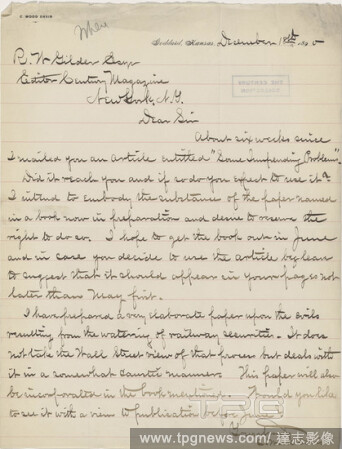 C. WOOD DAVIS
Where
Goddard, Kansas, December 18th 1890
R. W. Gilder Esqr
Editor Century Magazine
New York, N.Y.
Dear Sir
About six weeks since
I mailed you an article entitled "Some Impending Problems".
Did it reach you and if so do you expect to use it?
I intend to embody the substance of the paper named
in a book now in preparation and desire to reserve the
right to do so. I hope to get the book out in June
and in case you decide to use the article beg leave
to suggest that it should appear in your pages not
later than May first.
I have prepared a very elaborate paper upon the evils
resulting from the watering of railway securities. It does
not take the Wall Street view of that process but deals with
it in a somewhat caustic manner. This paper will also
be incorporated in the book mentioned. Would you like
to see it with a view to publication before June
TPG
www.tpgnews.com / 達志影像